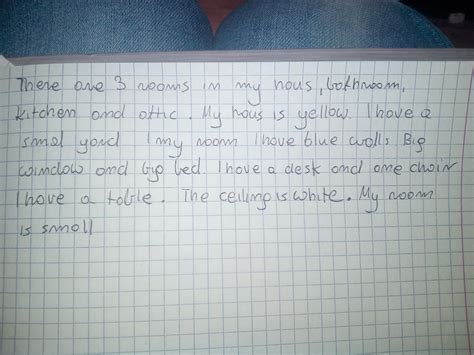 There are 3 rooms in my hous, bathroom,
kitchen and attic. My hous is yellow. I have a
smal yard I my room I have blue walls. Big
window and big bed. I have a desk and one chair
I have a table. The ceiling is white. My room
is small